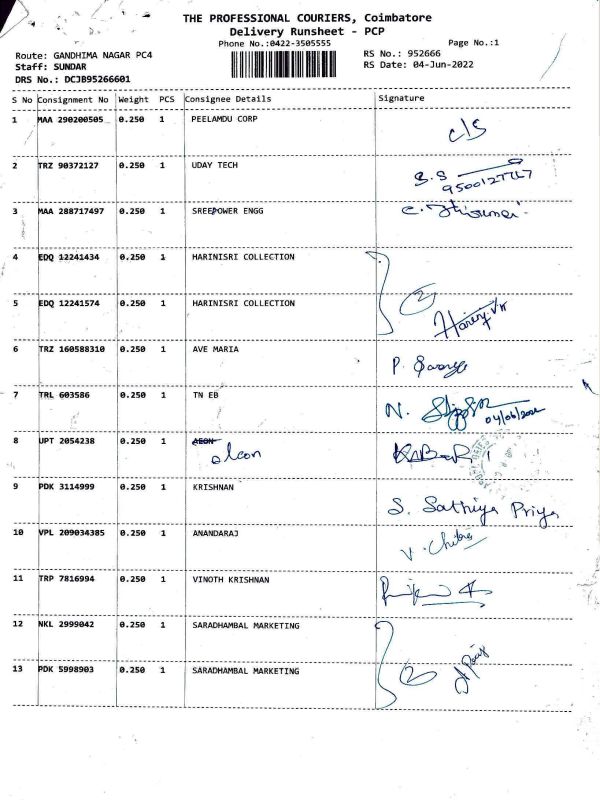 THE PROFESSIONAL COURIERS, Coimbatore
Delivery Runsheet - PCP
Phone No.:0422-3505555
Page No.:1
Route: GANDHIMA NAGAR PC4
RS No.: 952666
Staff: SUNDAR
RS Date: 04-Jun-2022
DRS No.: DCJB95266601
S No Consignment No Weight PCS Consignee Details Signature
1 MAA 290200505 0.250 1 PEELAMDU CORP c/s
2 TRZ 90372127 0.250 1 UDAY TECH S.S
3 MAA 288717497 0.250 1 SREEPOWER ENGG
4 EDQ 12241434 0.250 1 HARINISRI COLLECTION
5 EDQ 12241574 0.250 1 HARINISRI COLLECTION 2
6 TRZ 160588310 0.250 1 AVE MARIA
7 TRL 603586 0.250 1 TN EB N. 04/06/2022
8 UPT 2054238 0.250 1 AEON elcon
9 PDK 3114999 0.250 1 KRISHNAN S. Sathiya Priya
10 VPL 209034385 0.250 1 ANANDARAJ V. Chitra
11 TRP 7816994 0.250 1 VINOTH KRISHNAN
12 NKL 2999042 0.250 1 SARADHAMBAL MARKETING
13 PDK 5998903 0.250 1 SARADHAMBAL MARKETING 2